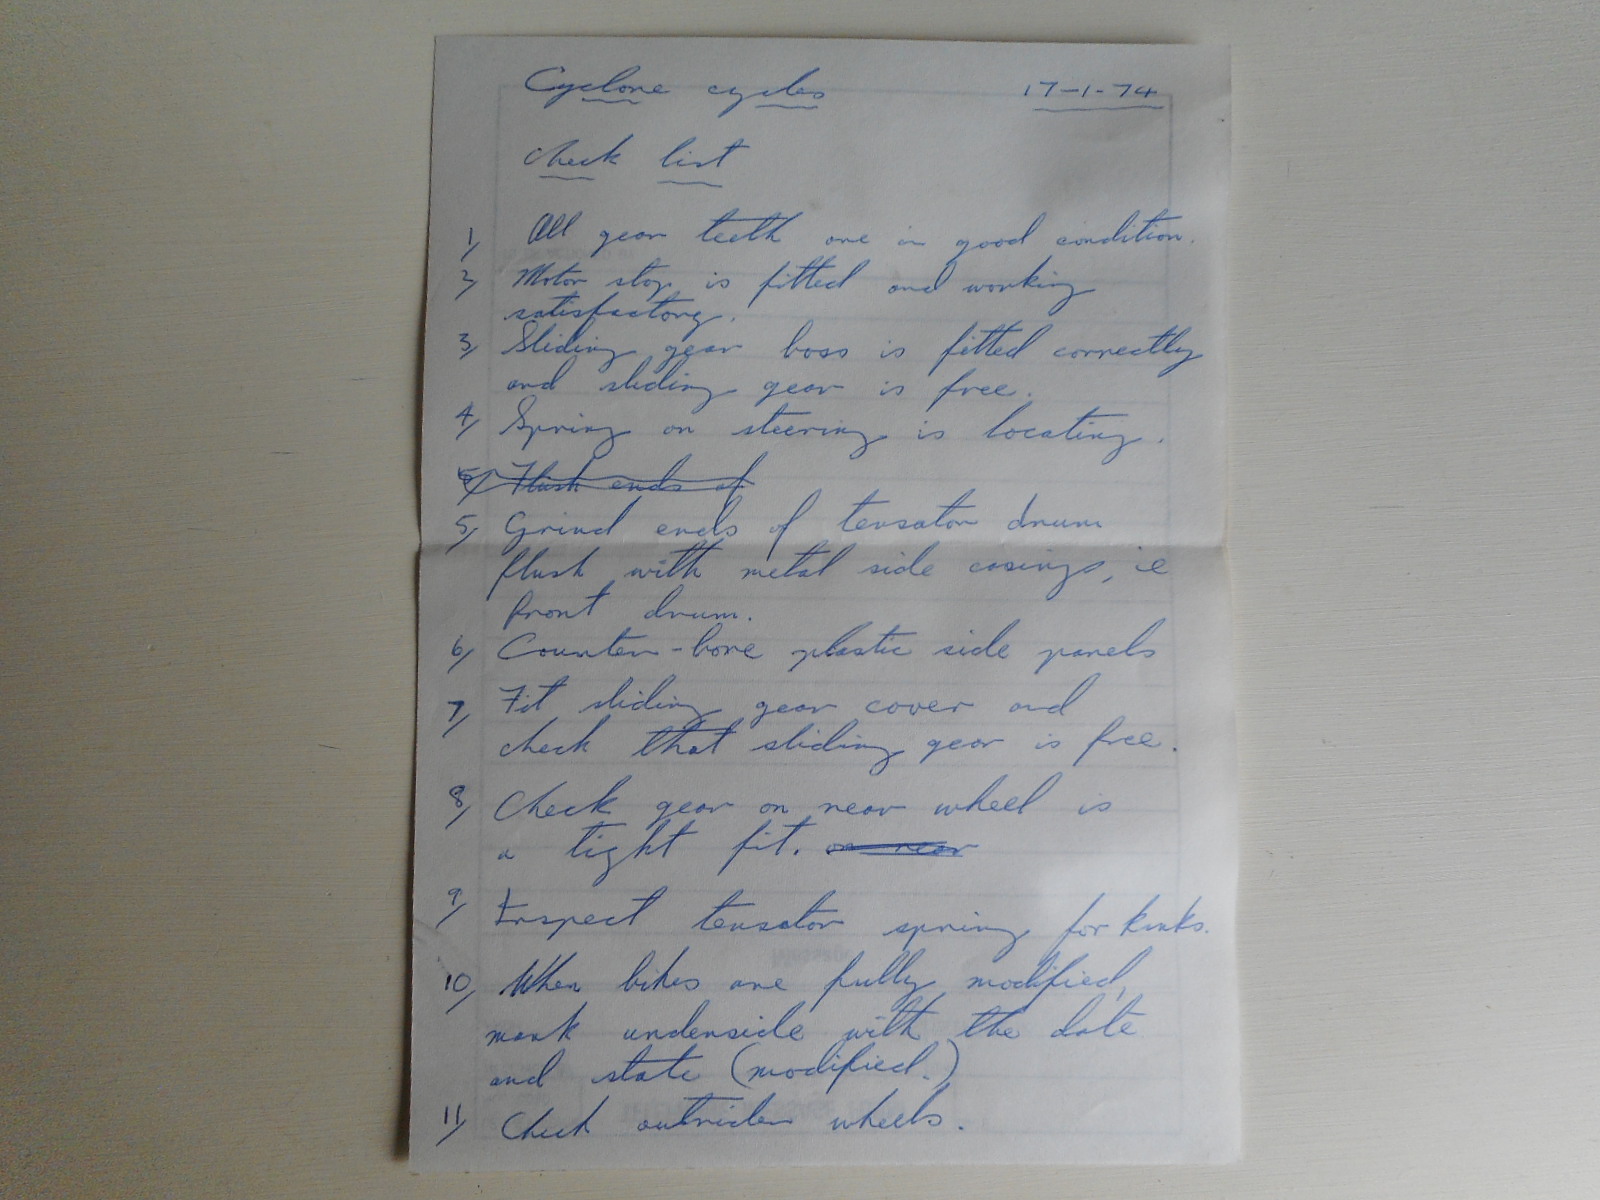 Cyclone cycles 17-1-74
Check list
1, All gear teeth are in good condition.
2, Motor stop is fitted and working
satisfactory.
3, Sliding gear boss is fitted correctly
and sliding gear is free.
4, Spring on steering is locating.
5, Flush ends of
5, Grind ends of tensator drum
flush with metal side casings, ie
front drum.
6, Counter-bore plastic side panels
7, Fit sliding gear cover and
check that sliding gear is free.
8, Check gear on rear wheel is
a tight fit. on rear
9, Inspect tensator spring for kinks.
10, When bikes are fully modified,
mark underside with the date
and state (modified.)
11, Check outrider wheels.